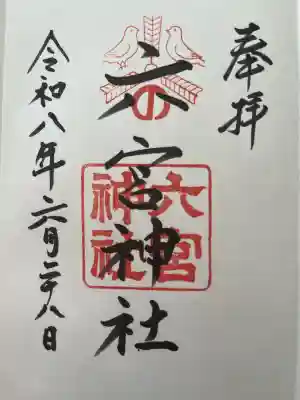 奉拝
六の宮神社
六宮神社
令和八年六月二十八日